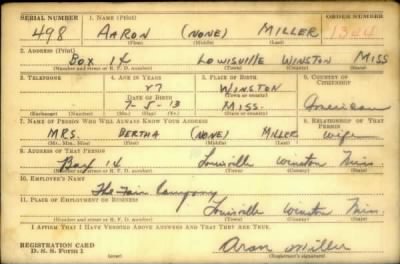 SERIAL NUMBER 1. NAME (Print) ORDER NUMBER
498 AARON (NONE) MILLER 1304
(First) (Middle) (Last)
2. ADDRESS (Print)
BOX 14 LOUISVILLE WINSTON MISS
(Number and street or R. F. D. number) (Town) (County) (State)
3. TELEPHONE 4. AGE IN YEARS 5. PLACE OF BIRTH 6. COUNTRY OF CITIZENSHIP
27 WINSTON
(Town or county)
DATE OF BIRTH
7-5-13 MISS. American
(Exchange) (Number) (Mo.) (Day) (Yr.) (State or country)
7. NAME OF PERSON WHO WILL ALWAYS KNOW YOUR ADDRESS 8. RELATIONSHIP OF THAT PERSON
MRS. BERTHA (NONE) MILLER wife
(Mr., Mrs., Miss) (First) (Middle) (Last)
9. ADDRESS OF THAT PERSON
Box 14 Louisville Winston Miss.
(Number and street or R. F. D. number) (Town) (County) (State)
10. EMPLOYER'S NAME
The Fair Company
11. PLACE OF EMPLOYMENT OR BUSINESS
Louisville Winston Miss.
(Number and street or R. F. D. number) (Town) (County) (State)
I AFFIRM THAT I HAVE VERIFIED ABOVE ANSWERS AND THAT THEY ARE TRUE.
REGISTRATION CARD
D. S. S. Form 1 Aron Miller
(Registrant's signature)